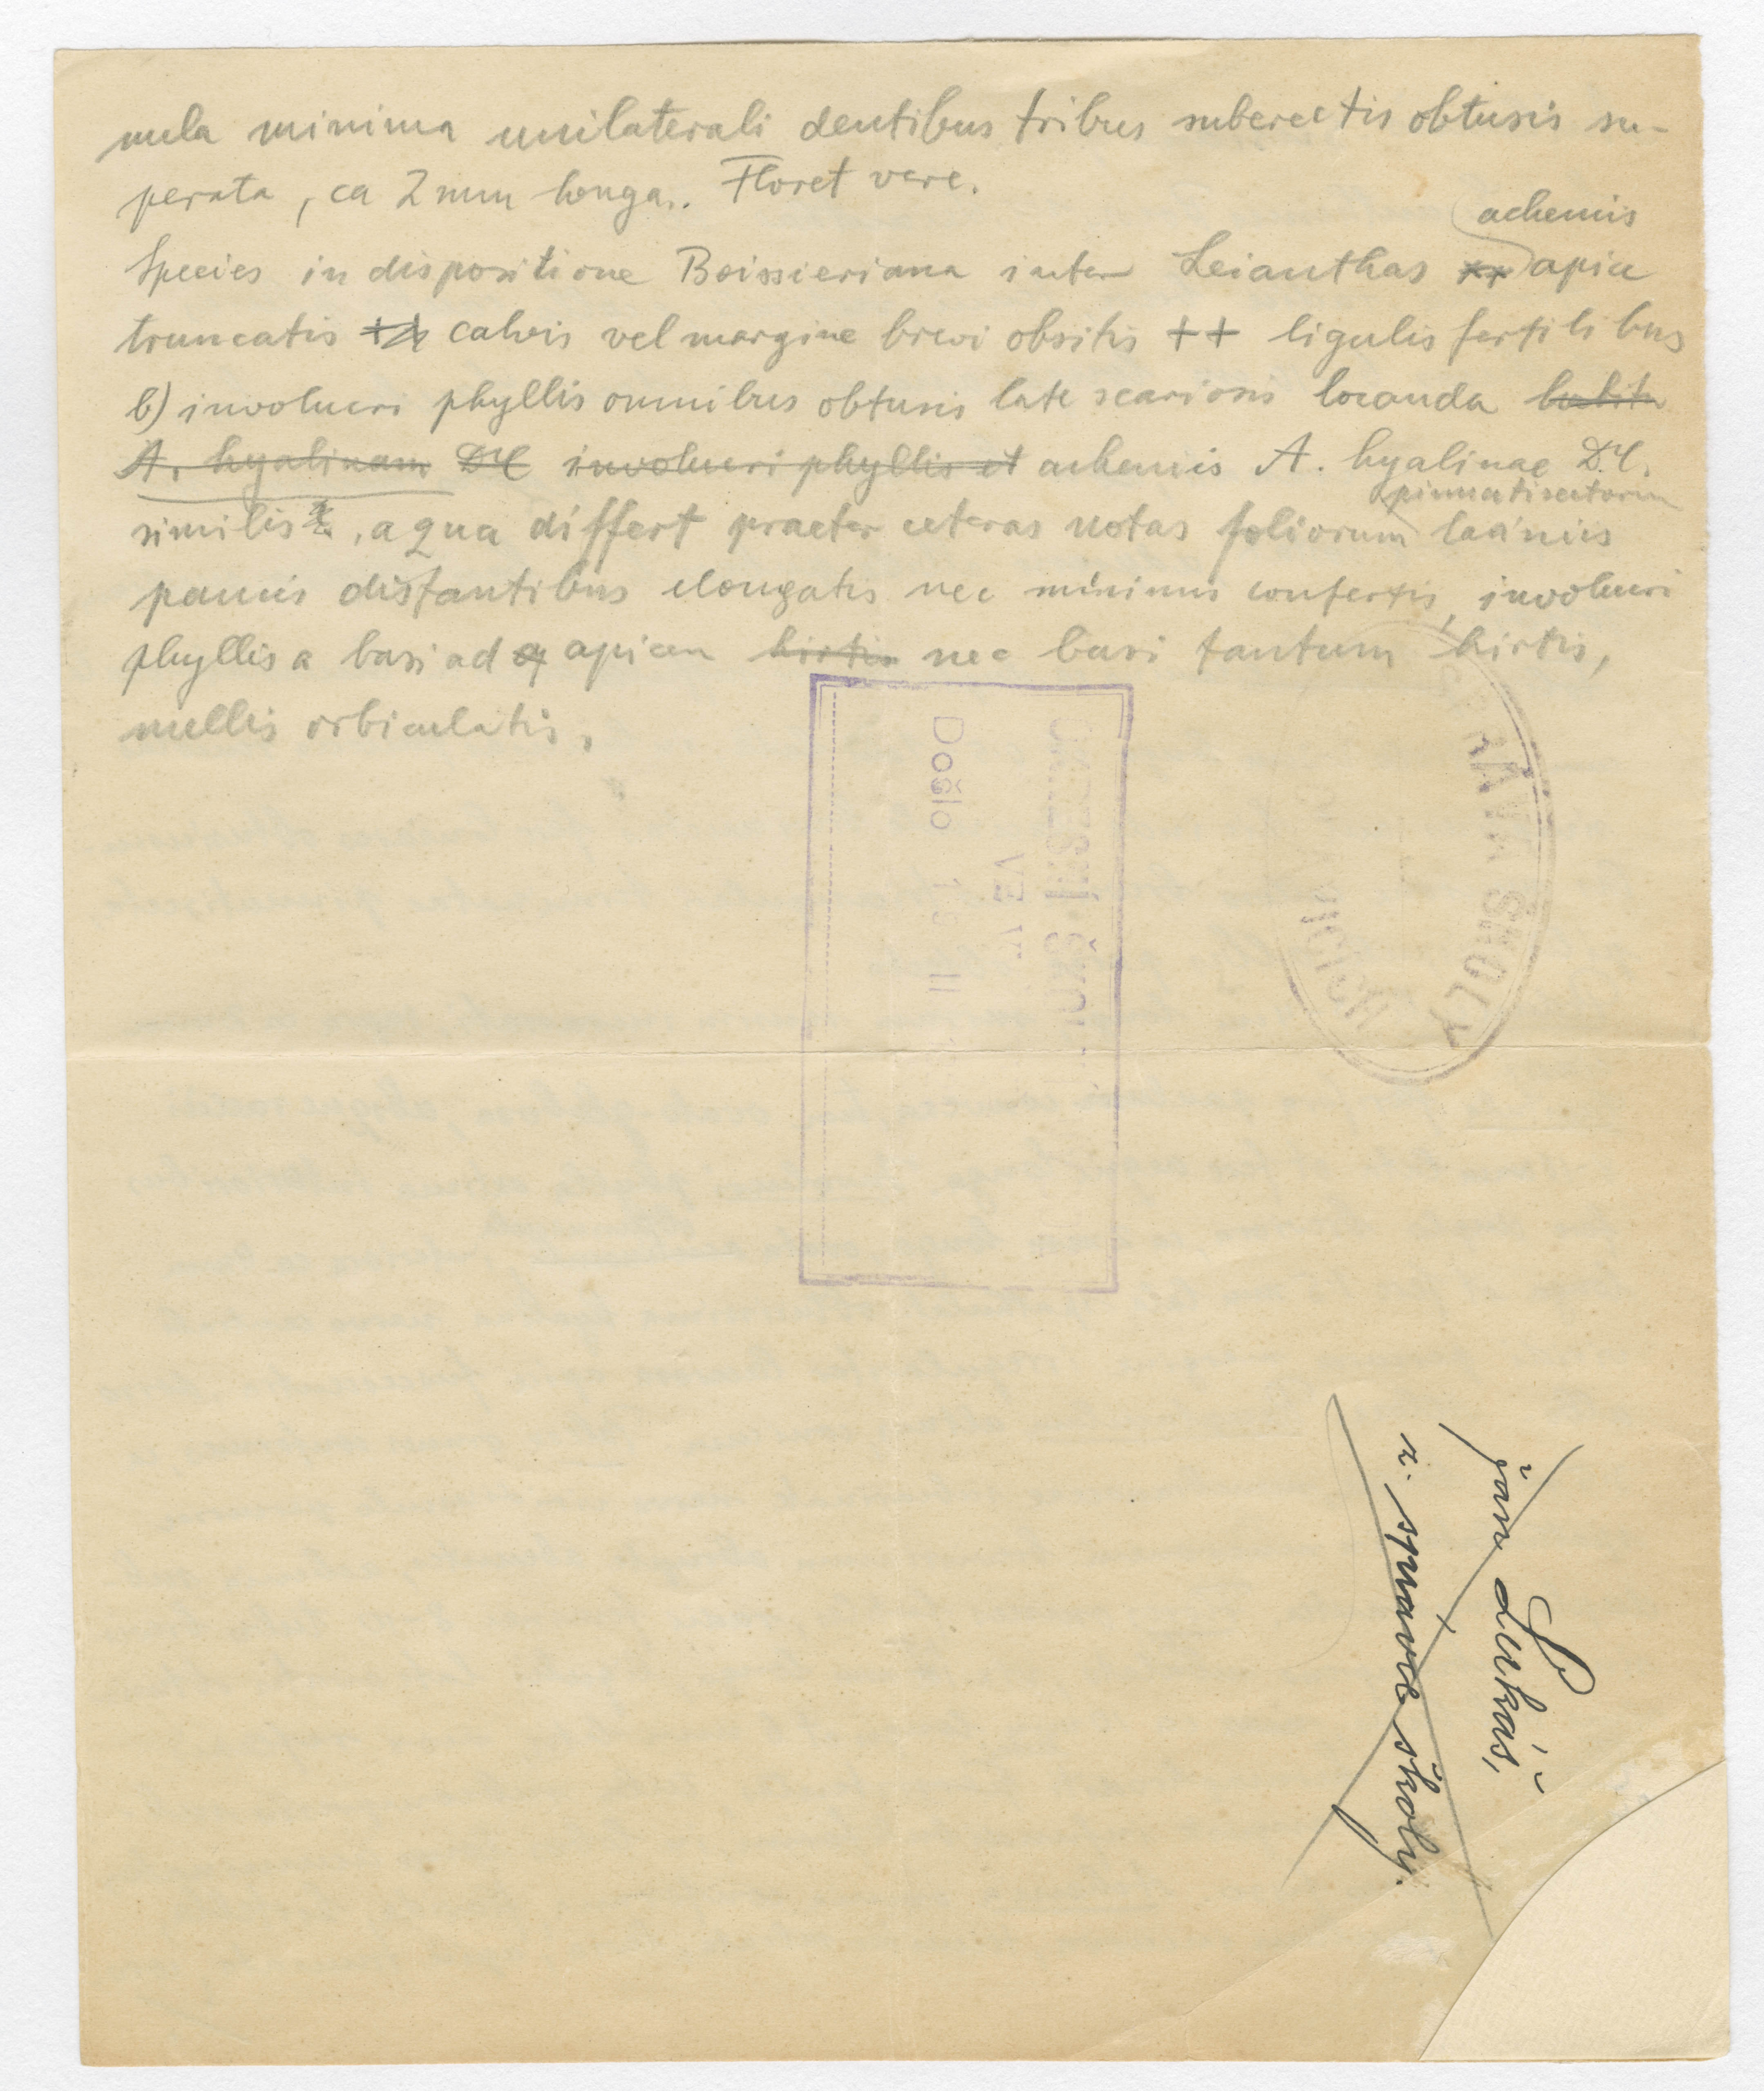 nula minima unilaterali dentibus tribus suberectis obtusis su-
perata, ca 2 mm longa. Floret vere.
achenis
Species in dispositione Boissieriana inter Leianthas xx apice
truncatis ++ calvis vel margine brevi obsitis ++ ligulis fertilibus
b) involucri phyllis omnibus obtusis late scariosis locanda habitu
A. hyalinam DC involucri phyllis et achenis A. hyalinae DC.
pinnatisectorum
similis, a qua differt praeter ceteras notas foliorum laciniis
paucis distantibus elongatis nec minimis confertis, involucri
phyllis a basi ad apicem hirtis nec basi tantum hirtis,
nullis orbiculatis.
Došlo
ŠKOLY
Jan Lukáš,
ř. správce školy.